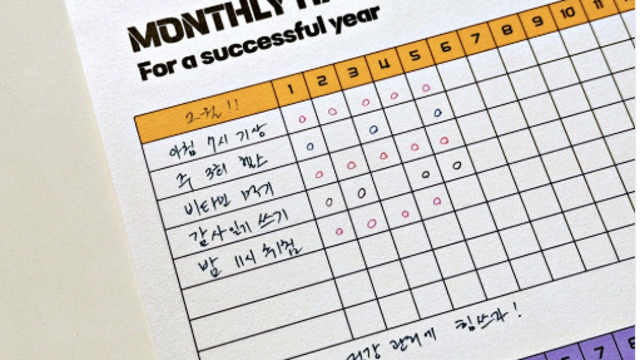 MONTHLY HA
For a successful year
2월!! 1 2 3 4 5 6 7 8 9 10 11
아침 7시 기상
주 3회 헬스
비타민 먹기
감사일기 쓰기
밤 11시 취침
건강 관리에 힘쓰자!
7 8